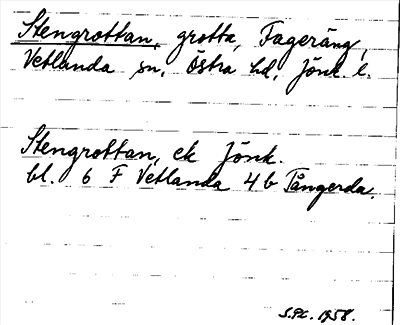 Stengrottan, grotta, Fageräng,
Vetlanda sn, Östra hd, Jönk. l.
Stengrottan, ek Jönk.
bl. 6 F Vetlanda 4 b Tångerda.
1958.